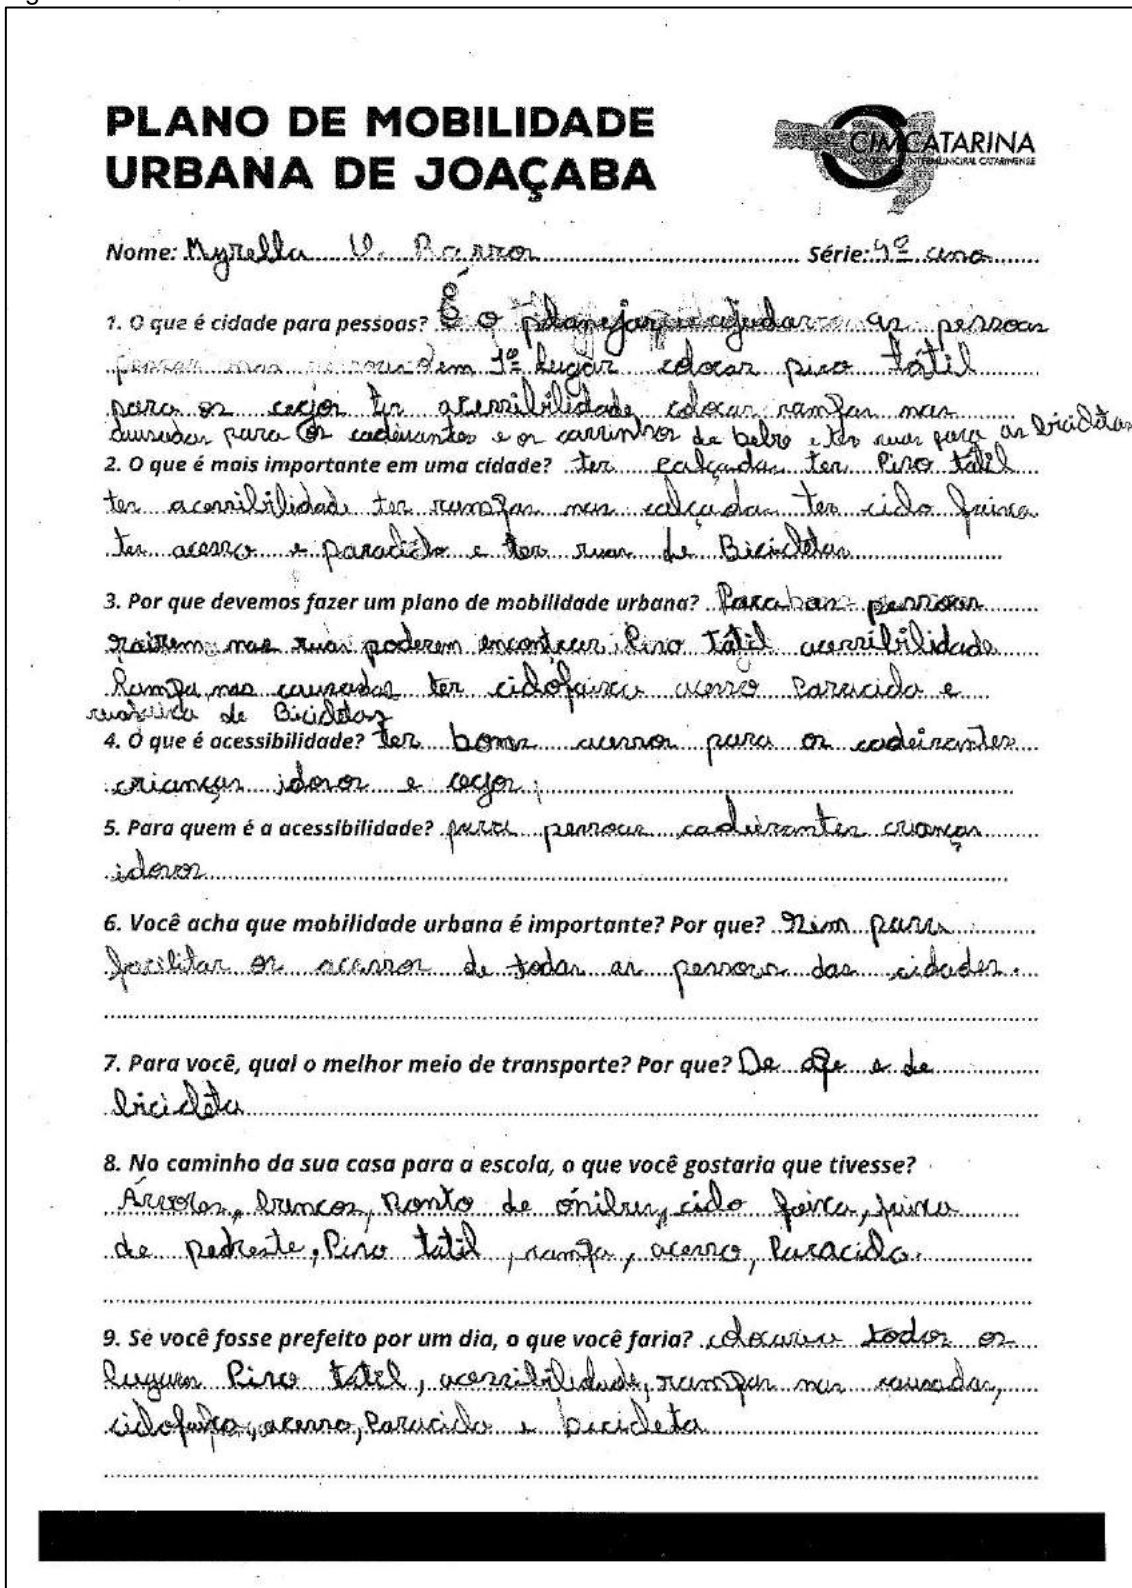 PLANO DE MOBILIDADE
URBANA DE JOAÇABA
CIMCATARINA
CONSÓRCIO INTERMUNICIPAL CATARINENSE
Nome: Myrella V. Série: 4º ano
1. O que é cidade para pessoas? É o planejar ajudar as pessoas
em 1º lugar colocar piso tátil
para os cegos ter acessibilidade colocar rampas nas
causadas para os cadeirantes e os carrinhos de bebe e ter ruas para as bicicletas
2. O que é mais importante em uma cidade? ter calçadas ter Piso tátil
ter acessibilidade ter rampas nas calçadas ter ciclo faixa
ter acesso e paraciclo e ter ruas de Bicicletas
3. Por que devemos fazer um plano de mobilidade urbana? Para pessoas
sairem nas ruas poderem encontrar Piso Tátil acessibilidade
Rampa nas causadas ter ciclofaixa acesso Paracicla e
de Bicicletas
4. O que é acessibilidade? Ter bons acessos para os cadeirantes
crianças idosos e cegos
5. Para quem é a acessibilidade? para pessoas cadeirantes crianças
idosos
6. Você acha que mobilidade urbana é importante? Por que? Sim para
facilitar os acessos de todas as pessoas das cidades.
7. Para você, qual o melhor meio de transporte? Por que? De ape e de
bicicleta
8. No caminho da sua casa para a escola, o que você gostaria que tivesse?
Árvores, brincos, Ponto de ônibus, ciclo faixa, faixa
de pedreste, Piso tátil, rampa, acesso, Paraciclo.
9. Se você fosse prefeito por um dia, o que você faria? colocaria todos os
lugares Piso tátil, acessibilidade, rampas nas causadas,
ciclofaixa, acesso, Paraciclo e bicicleta